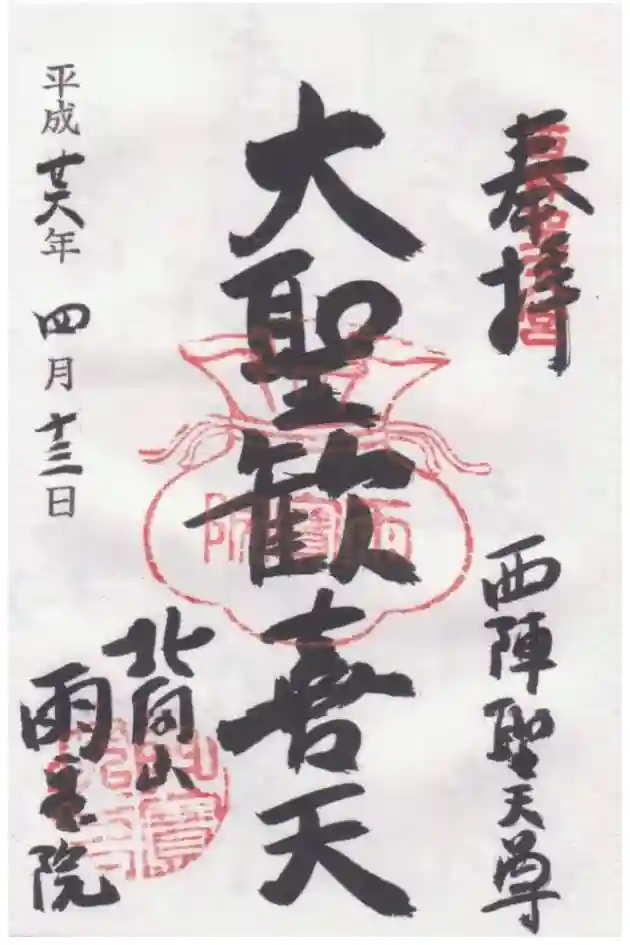 奉拝
西陣聖天尊
大聖歓喜天
雨寳院
北向山
雨宝院
平成廿六年 四月十三日